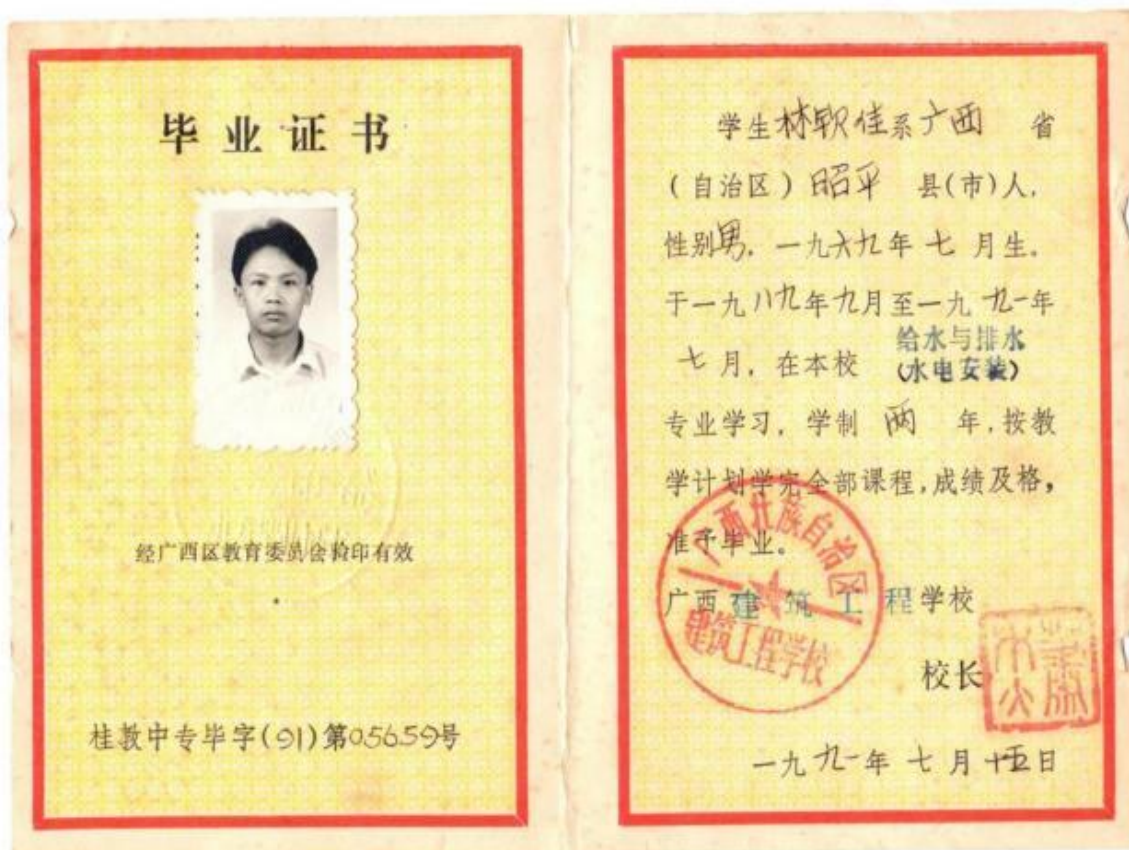 毕业证书
经广西区教育委员会验印有效
桂教中专毕字(91)第05659号
学生林 佳系广西 省
(自治区)昭平 县(市)人,
性别男,一九六九年 七 月生,
于一九八九年九月至一九九一年
七月,在本校 给水与排水
(水电安装)
专业学习,学制 两 年,按教
学计划学完全部课程,成绩及格,
准予毕业。
广西 建 筑 工 程 学校
广西壮族自治区
建筑工程学校
校长
一九九一年 七 月十五日